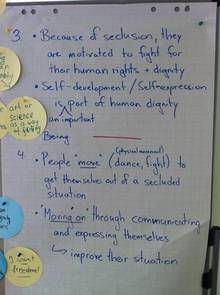 3. • Because of seclusion, they
are motivated to fight for
thair human rights + dignity
• Self-development / Self-expression
is part of human dignity
an important
Being
4. • People move (dance, fight) to
(physical movement)
get themselves out of a secluded
situation
• "Moving on" through communicating
and expressing themselves
↳ improve their situation
art or
science
as a way
of
I want
freedom!